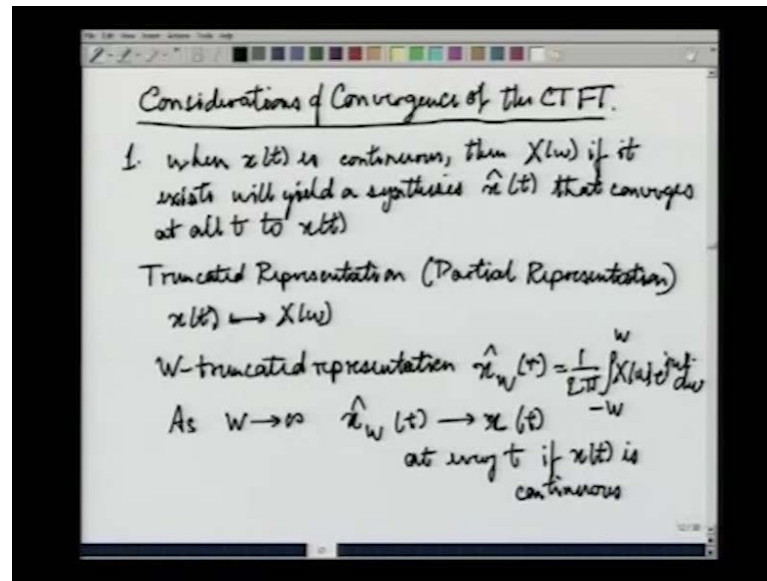 Considerations of Convergence of the CTFT.
1. when x(t) is continuous, then X(w) if it
exists will yield a synthesis x̂(t) that converges
at all t to x(t)
Truncated Representation (Partial Representation)
x(t) ⟷ X(w)
W-truncated representation x̂_W(t) = 1/2π ∫_{-W}^{W} X(w) e^{jwt} dw
As W → ∞ x̂_W(t) → x(t)
at every t if x(t) is
continuous